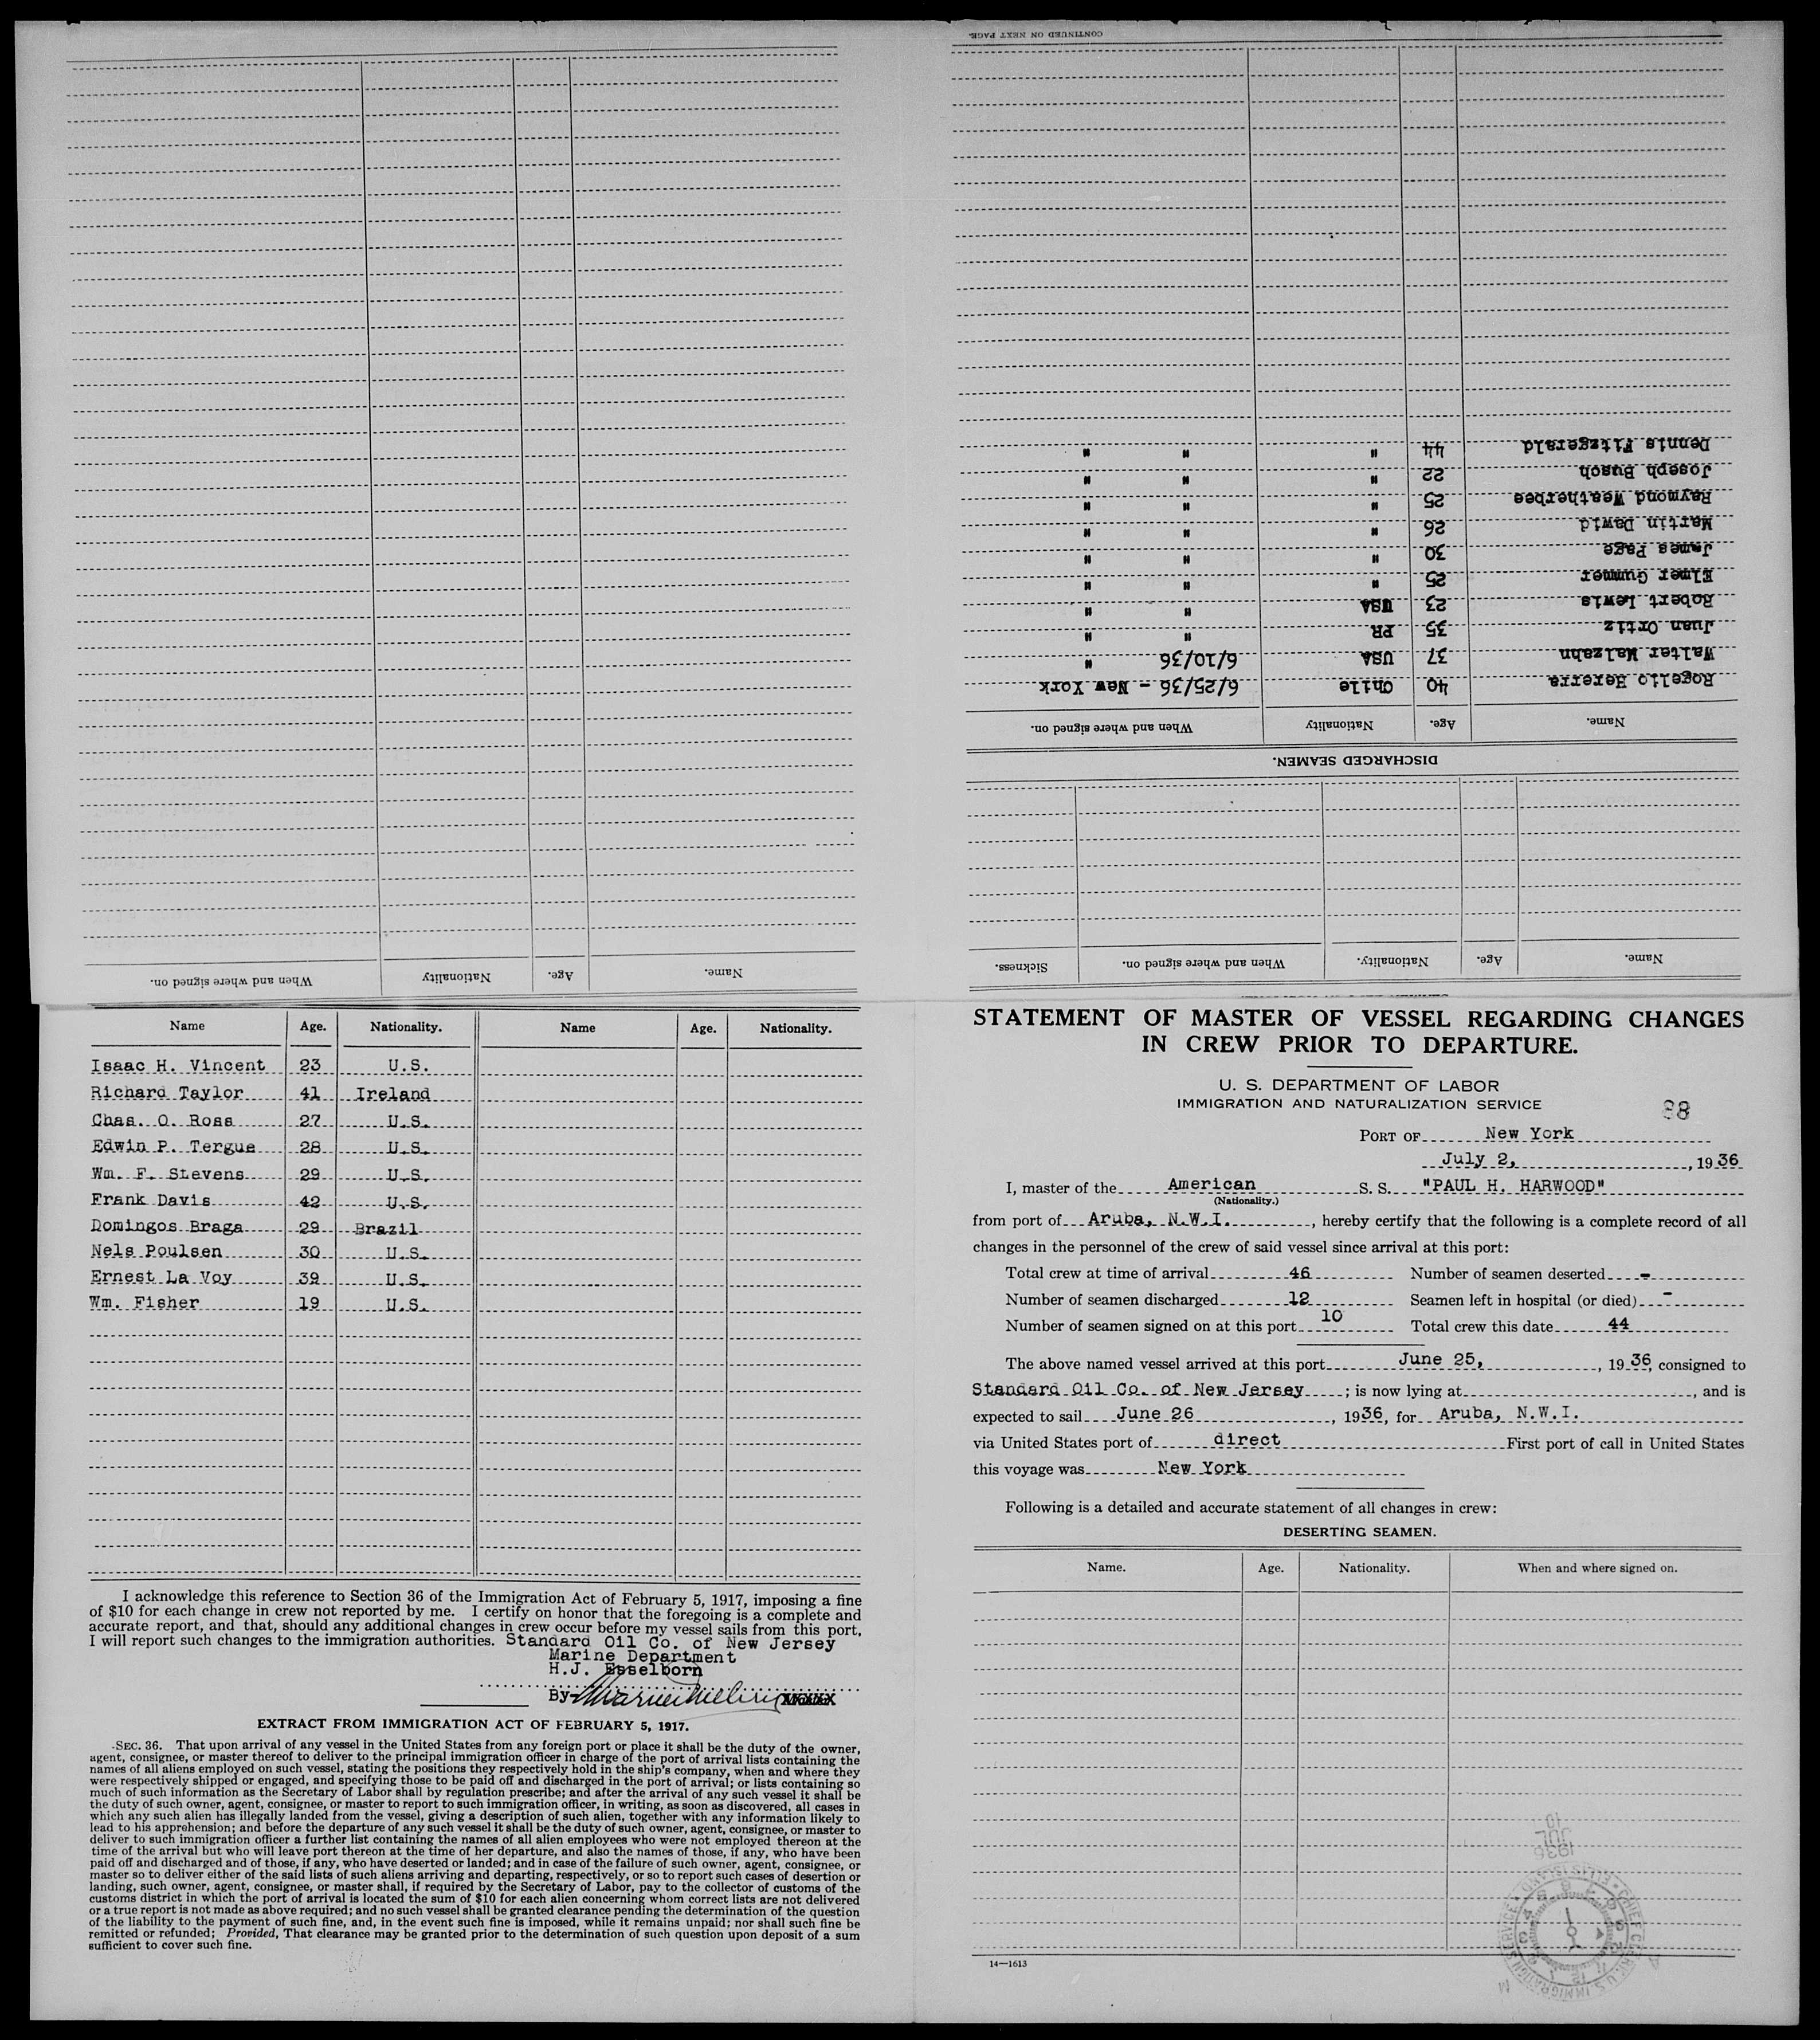 CONTINUED ON NEXT PAGE.
Name. Age. Nationality When and where signed on.
Name. Age. Nationality. When and where signed on. Sickness.
DISCHARGED SEAMEN.
Name. Age. Nationality When and where signed on.
Rogelio Hererra 40 Chile 6/25/36 - New York
Walter Malzahn 37 USA 6/10/36 "
Juan Ortiz 35 PR " "
Robert Lewis 23 USA " "
Elmer Gummer 25 " " "
James Page 30 " " "
Martin Dawid 26 " " "
Raymond Weatherbee 25 " " "
Joseph Busch 22 " " "
Dennis Fitzgerald 44 " " "
Name Age. Nationality. Name Age. Nationality.
Isaac H. Vincent 23 U.S.
Richard Taylor 41 Ireland
Chas. O. Ross 27 U.S.
Edwin P. Tergue 28 U.S.
Wm. F. Stevens 29 U.S.
Frank Davis 42 U.S.
Domingos Braga 29 Brazil
Nels Poulsen 30 U.S.
Ernest La Voy 39 U.S.
Wm. Fisher 19 U.S.
I acknowledge this reference to Section 36 of the Immigration Act of February 5, 1917, imposing a fine
of $10 for each change in crew not reported by me. I certify on honor that the foregoing is a complete and
accurate report, and that, should any additional changes in crew occur before my vessel sails from this port,
I will report such changes to the immigration authorities. Standard Oil Co. of New Jersey
Marine Department
H.J. Esselborn
By
EXTRACT FROM IMMIGRATION ACT OF FEBRUARY 5, 1917.
SEC. 36. That upon arrival of any vessel in the United States from any foreign port or place it shall be the duty of the owner,
agent, consignee, or master thereof to deliver to the principal immigration officer in charge of the port of arrival lists containing the
names of all aliens employed on such vessel, stating the positions they respectively hold in the ship's company, when and where they
were respectively shipped or engaged, and specifying those to be paid off and discharged in the port of arrival; or lists containing so
much of such information as the Secretary of Labor shall by regulation prescribe; and after the arrival of any such vessel it shall be
the duty of such owner, agent, consignee, or master to report to such immigration officer, in writing, as soon as discovered, all cases in
which any such alien has illegally landed from the vessel, giving a description of such alien, together with any information likely to
lead to his apprehension; and before the departure of any such vessel it shall be the duty of such owner, agent, consignee, or master to
deliver to such immigration officer a further list containing the names of all alien employees who were not employed thereon at the
time of the arrival but who will leave port thereon at the time of her departure, and also the names of those, if any, who have been
paid off and discharged and of those, if any, who have deserted or landed; and in case of the failure of such owner, agent, consignee, or
master so to deliver either of the said lists of such aliens arriving and departing, respectively, or so to report such cases of desertion or
landing, such owner, agent, consignee, or master shall, if required by the Secretary of Labor, pay to the collector of customs of the
customs district in which the port of arrival is located the sum of $10 for each alien concerning whom correct lists are not delivered
or a true report is not made as above required; and no such vessel shall be granted clearance pending the determination of the question
of the liability to the payment of such fine, and, in the event such fine is imposed, while it remains unpaid; nor shall such fine be
remitted or refunded; Provided, That clearance may be granted prior to the determination of such question upon deposit of a sum
sufficient to cover such fine.
STATEMENT OF MASTER OF VESSEL REGARDING CHANGES
IN CREW PRIOR TO DEPARTURE.
U. S. DEPARTMENT OF LABOR
IMMIGRATION AND NATURALIZATION SERVICE
88
PORT OF New York
July 2, , 1936
I, master of the American S. S. "PAUL H. HARWOOD"
(Nationality.)
from port of Aruba, N.W.I. , hereby certify that the following is a complete record of all
changes in the personnel of the crew of said vessel since arrival at this port:
Total crew at time of arrival 46 Number of seamen deserted -
Number of seamen discharged 12 Seamen left in hospital (or died) -
Number of seamen signed on at this port 10 Total crew this date 44
The above named vessel arrived at this port June 25, , 1936, consigned to
Standard Oil Co. of New Jersey ; is now lying at , and is
expected to sail June 26 , 1936, for Aruba, N.W.I.
via United States port of direct First port of call in United States
this voyage was New York
Following is a detailed and accurate statement of all changes in crew:
DESERTING SEAMEN.
Name. Age. Nationality. When and where signed on.
14—1613
1936
JUL
10
CHIEF CLERK, U.S. IMMIGRATION SERVICE ELLIS ISLAND